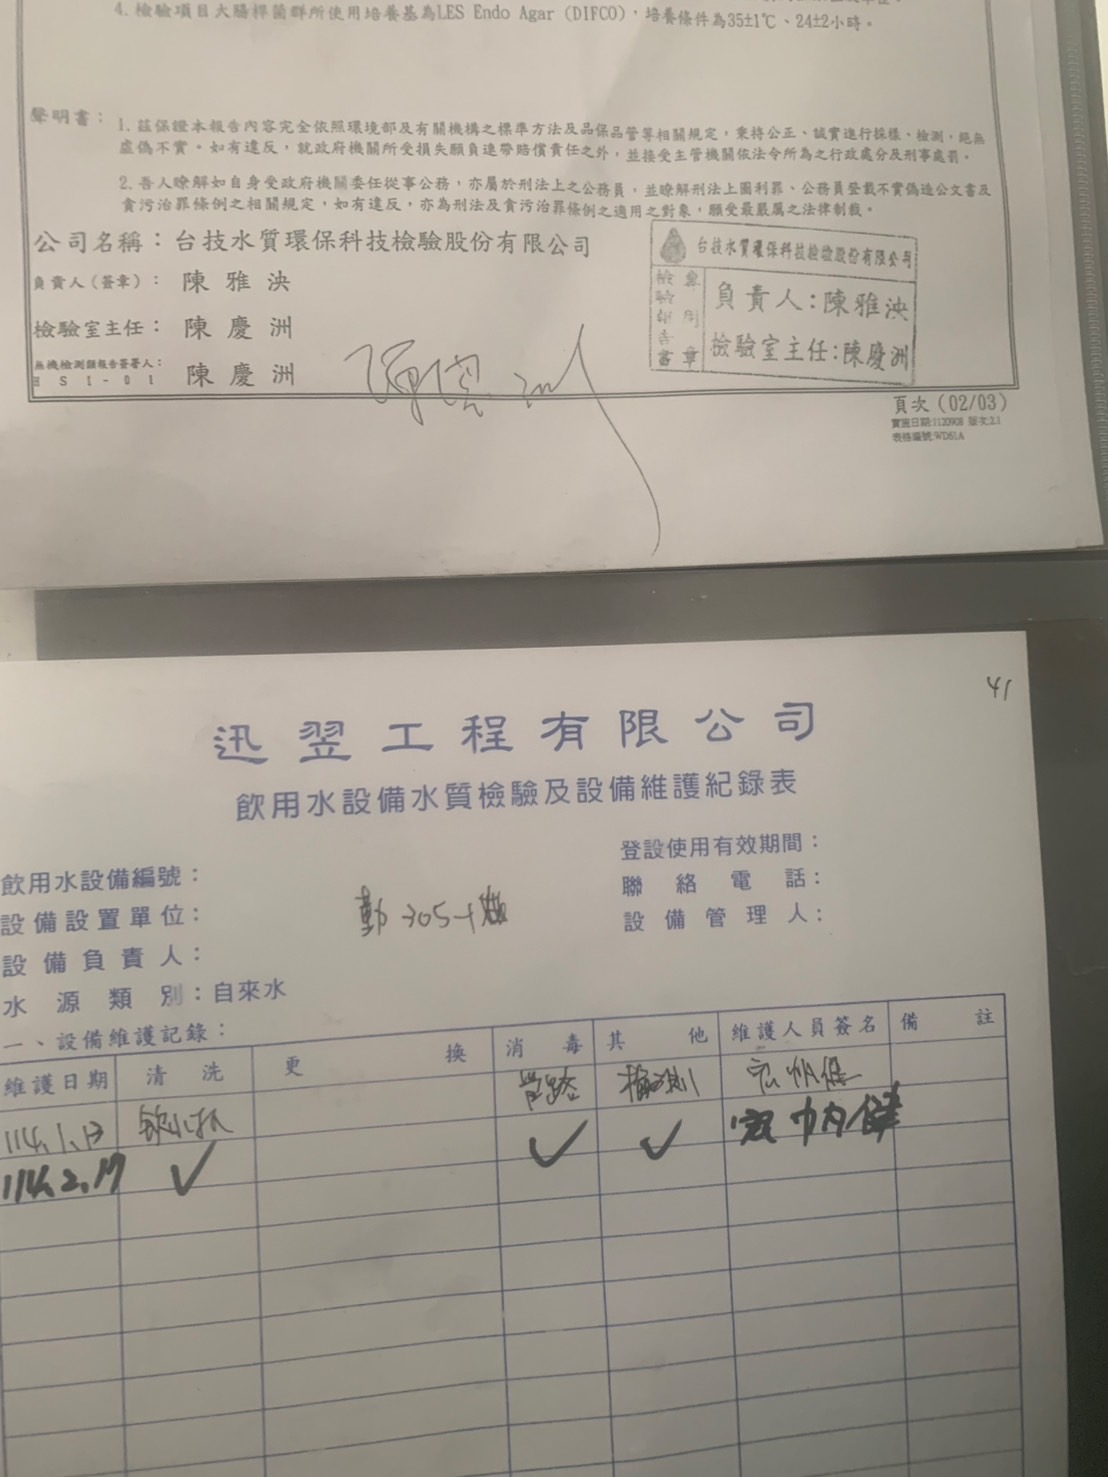 4. 檢驗項目大腸桿菌群所使用培養基為LES Endo Agar (DIFCO)，培養條件為35±1℃、24±2小時。
聲明書：
1. 茲保證本報告內容完全依照環境部及有關機構之標準方法及品保品管等相關規定，秉持公正、誠實進行採樣、檢測，絕無
虛偽不實。如有違反，就政府機關所受損失願負連帶賠償責任之外，並接受主管機關依法令所為之行政處分及刑事處罰。
2. 吾人瞭解如自身受政府機關委任從事公務，亦屬於刑法上之公務員，並瞭解刑法上圖利罪、公務員登載不實偽造公文書及
貪污治罪條例之相關規定，如有違反，亦為刑法及貪污治罪條例之適用之對象，願受最嚴厲之法律制裁。
公司名稱：台技水質環保科技檢驗股份有限公司
負責人(簽章)：陳雅泱
檢驗室主任：陳慶洲
無機檢測類報告簽署人：陳慶洲
HSI-01
陳慶洲
台技水質環保科技檢驗股份有限公司
檢驗報告書
專用章
負責人:陳雅泱
檢驗室主任:陳慶洲
頁次 (02/03)
實施日期:1120908 版次:2.1
表格編號:WD61A
41
迅翌工程有限公司
飲用水設備水質檢驗及設備維護紀錄表
飲用水設備編號：
登設使用有效期間：
設備設置單位：
勤 305-1
聯絡電話：
設備負責人：
設備管理人：
水源類別：自來水
一、設備維護記錄：
維護日期 清洗 更換 消毒 其他 維護人員簽名 備註
114.1.13 管路 檢測
114.2.17 ✓ ✓ ✓